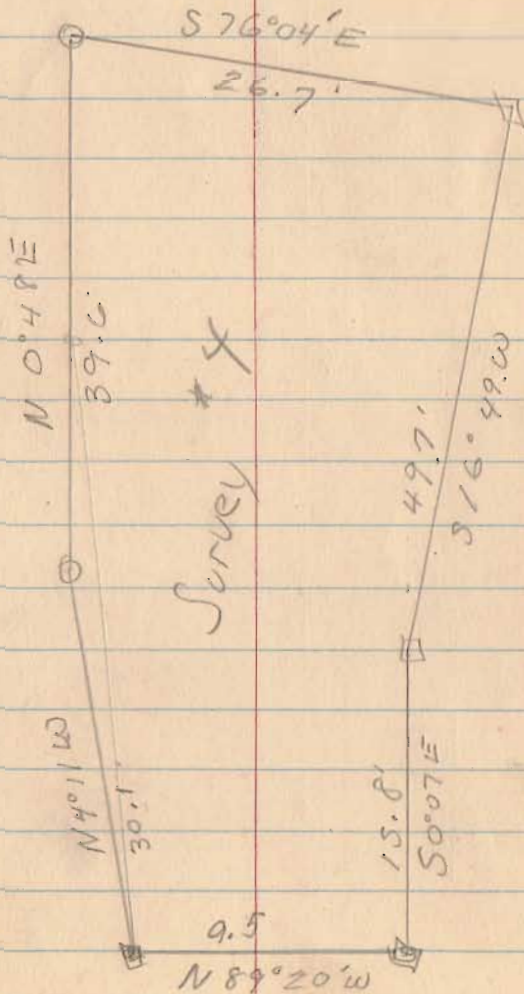 S 76°04' E
26.7'
N 0°48 E
39.6
Survey
49.7'
S 16° 49. W
N 4° 11 W
30.1'
15.8'
S 0°07 E
9.5
N 89°20' W